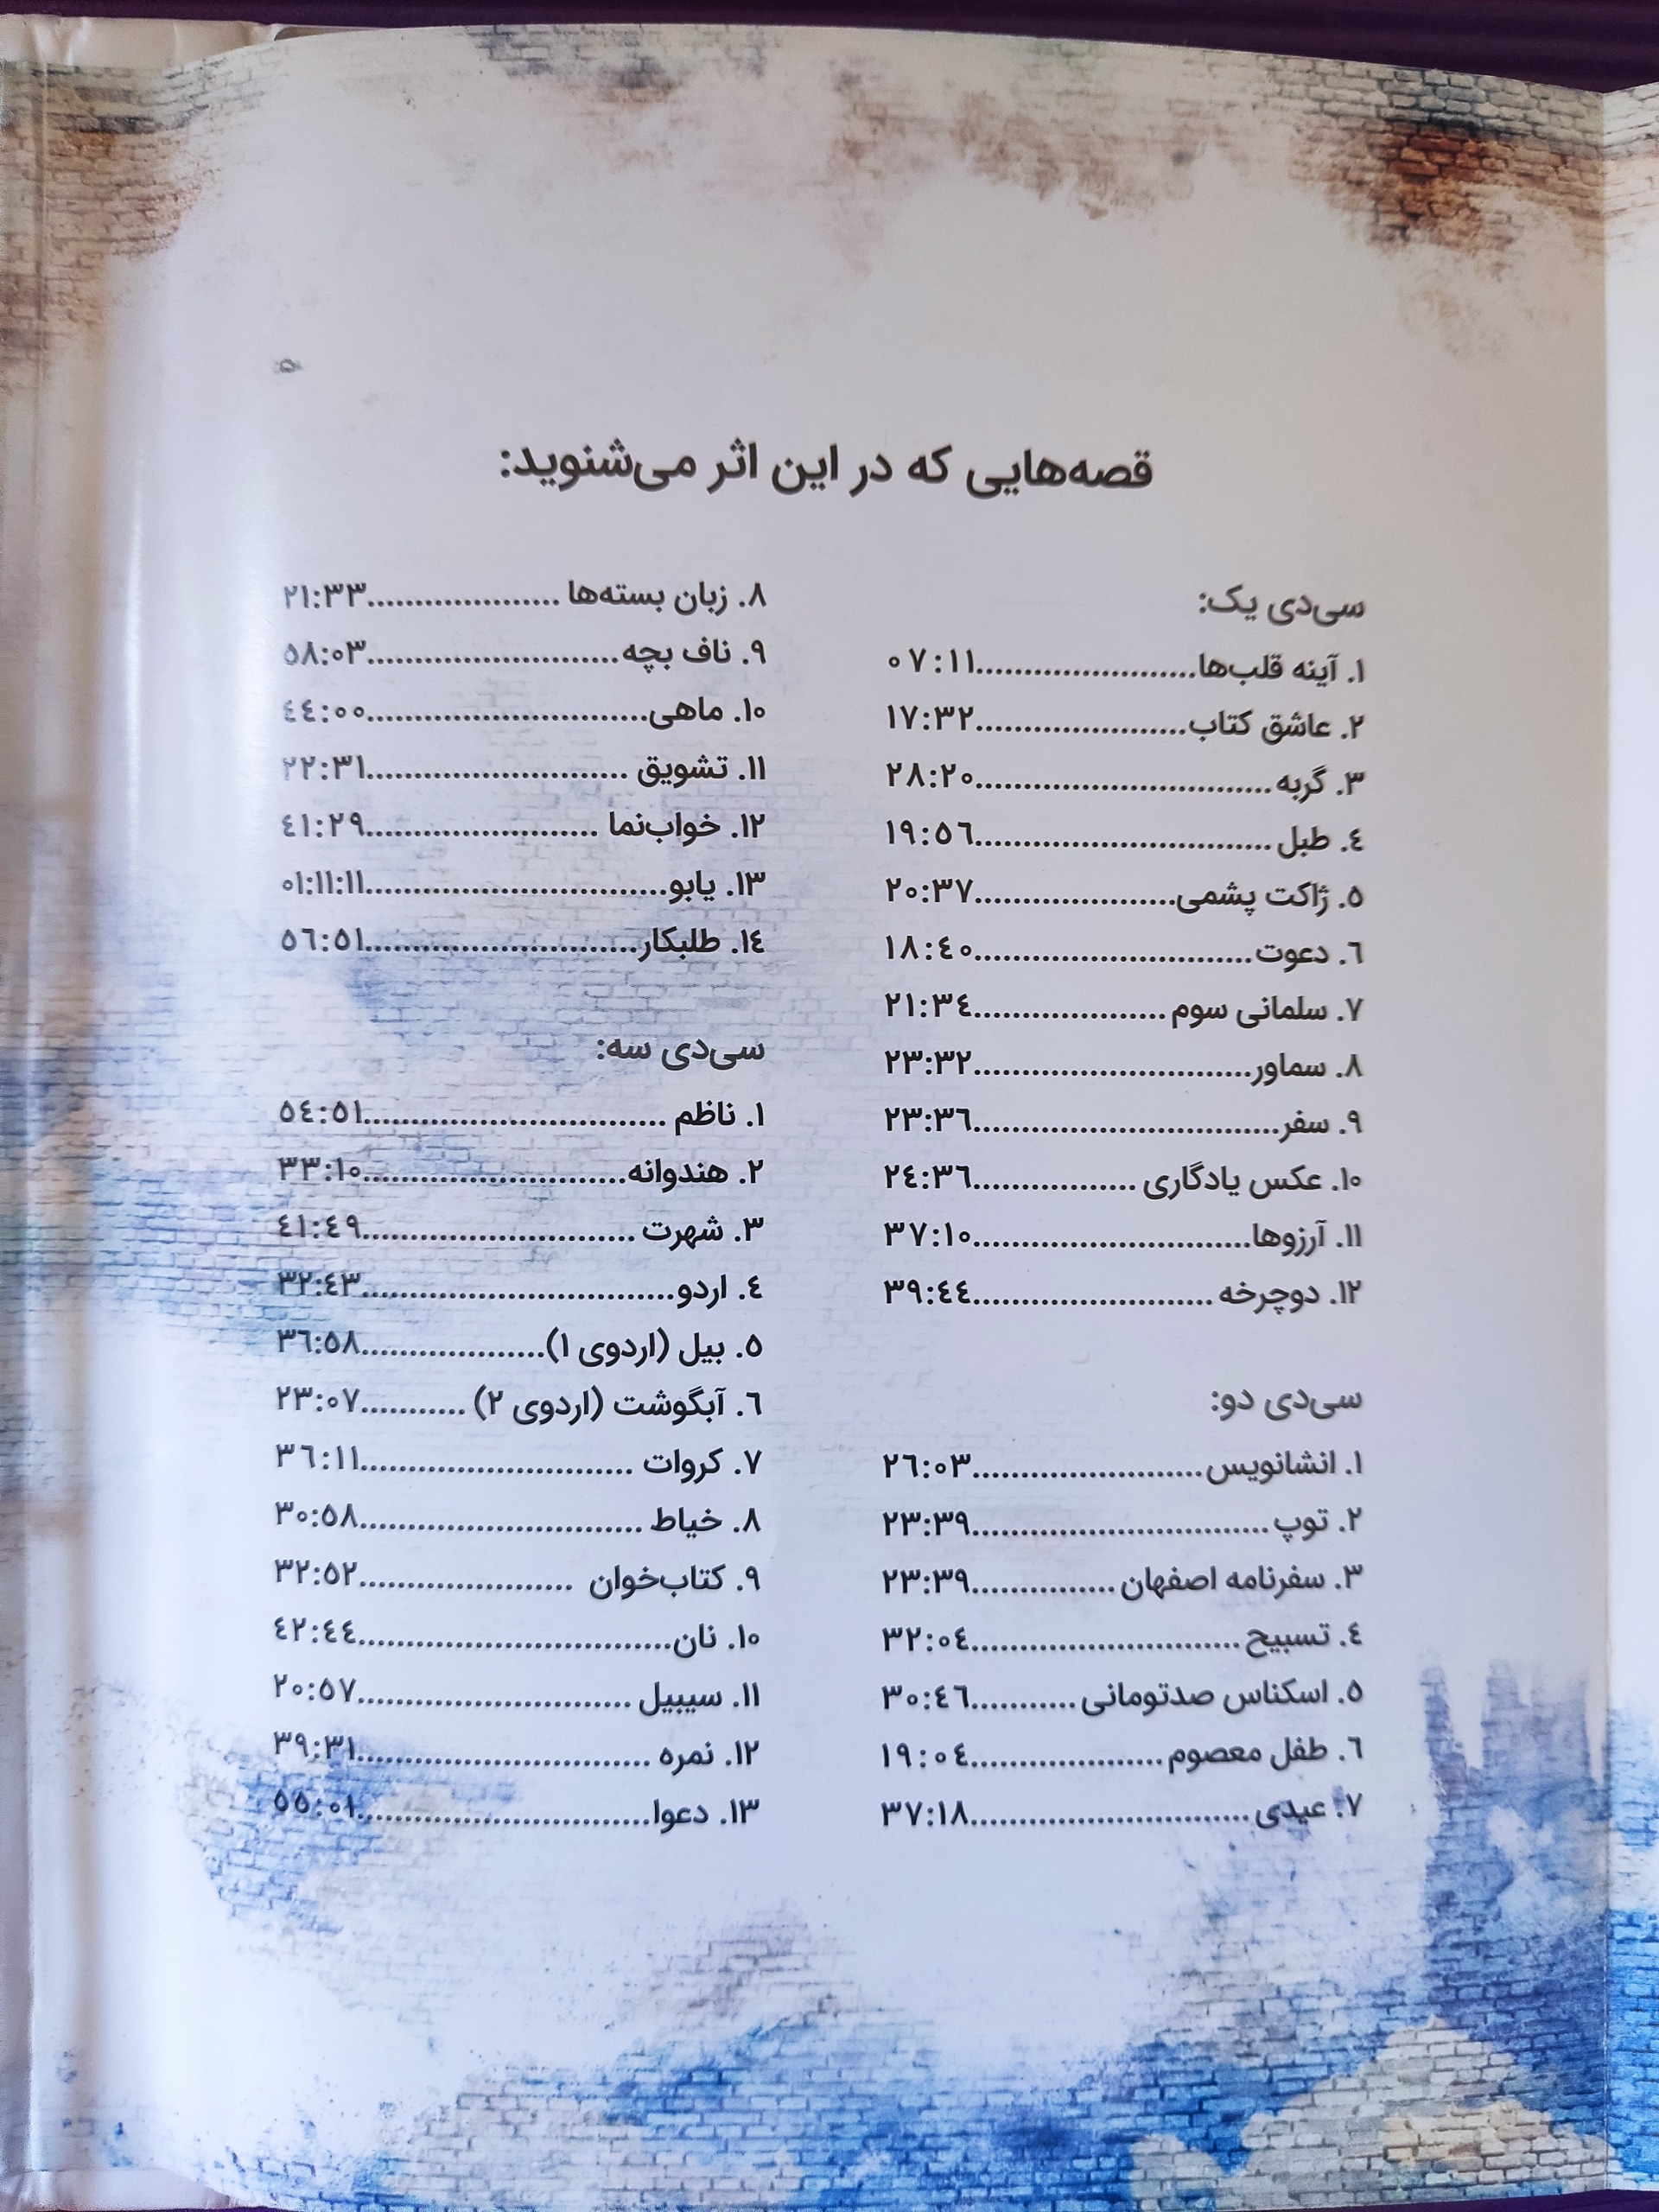 قصه‌هایی که در این اثر می‌شنوید:
سی‌دی یک:
۱. آینه قلب‌ها......................۰۷:۱۱
۲. عاشق کتاب......................۱۷:۳۲
۳. گربه..............................۲۸:۲۰
٤. طبل..............................۱۹:٥٦
٥. ژاکت پشمی.....................۲۰:۳۷
٦. دعوت............................۱۸:٤۰
۷. سلمانی سوم....................۲۱:۳٤
۸. سماور............................۲۳:۳۲
۹. سفر...............................۲۳:۳٦
۱۰. عکس یادگاری.................۲٤:۳٦
۱۱. آرزوها............................۳۷:۱۰
۱۲. دوچرخه........................۳۹:٤٤
سی‌دی دو:
۱. انشانویس.......................۲٦:۰۳
۲. توپ..............................۲۳:۳۹
۳. سفرنامه اصفهان...............۲۳:۳۹
٤. تسبیح...........................۳۲:۰٤
٥. اسکناس صدتومانی...........۳۰:٤٦
٦. طفل معصوم....................۱۹:۰٤
۷. عیدی............................۳۷:۱۸
۸. زبان بسته‌ها....................۲۱:۳۳
۹. ناف بچه..........................٥۸:۰۳
۱۰. ماهی.............................٤٤:۰۰
۱۱. تشویق...........................۲۲:۳۱
۱۲. خواب‌نما........................٤۱:۲۹
۱۳. یابو...............................۰۱:۱۱:۱۱
۱٤. طلبکار............................٥٦:٥۱
سی‌دی سه:
۱. ناظم...............................٥٤:٥۱
۲. هندوانه...........................۳۳:۱۰
۳. شهرت............................٤۱:٤۹
٤. اردو................................۳۲:٤۳
٥. بیل (اردوی ۱)...................۳٦:٥۸
٦. آبگوشت (اردوی ۲)...........۲۳:۰۷
۷. کروات............................۳٦:۱۱
۸. خیاط..............................۳۰:٥۸
۹. کتاب‌خوان.......................۳۲:٥۲
۱۰. نان................................٤۲:٤٤
۱۱. سیبیل............................۲۰:٥۷
۱۲. نمره..............................۳۹:۳۱
۱۳. دعوا..............................٥٥:۰۱